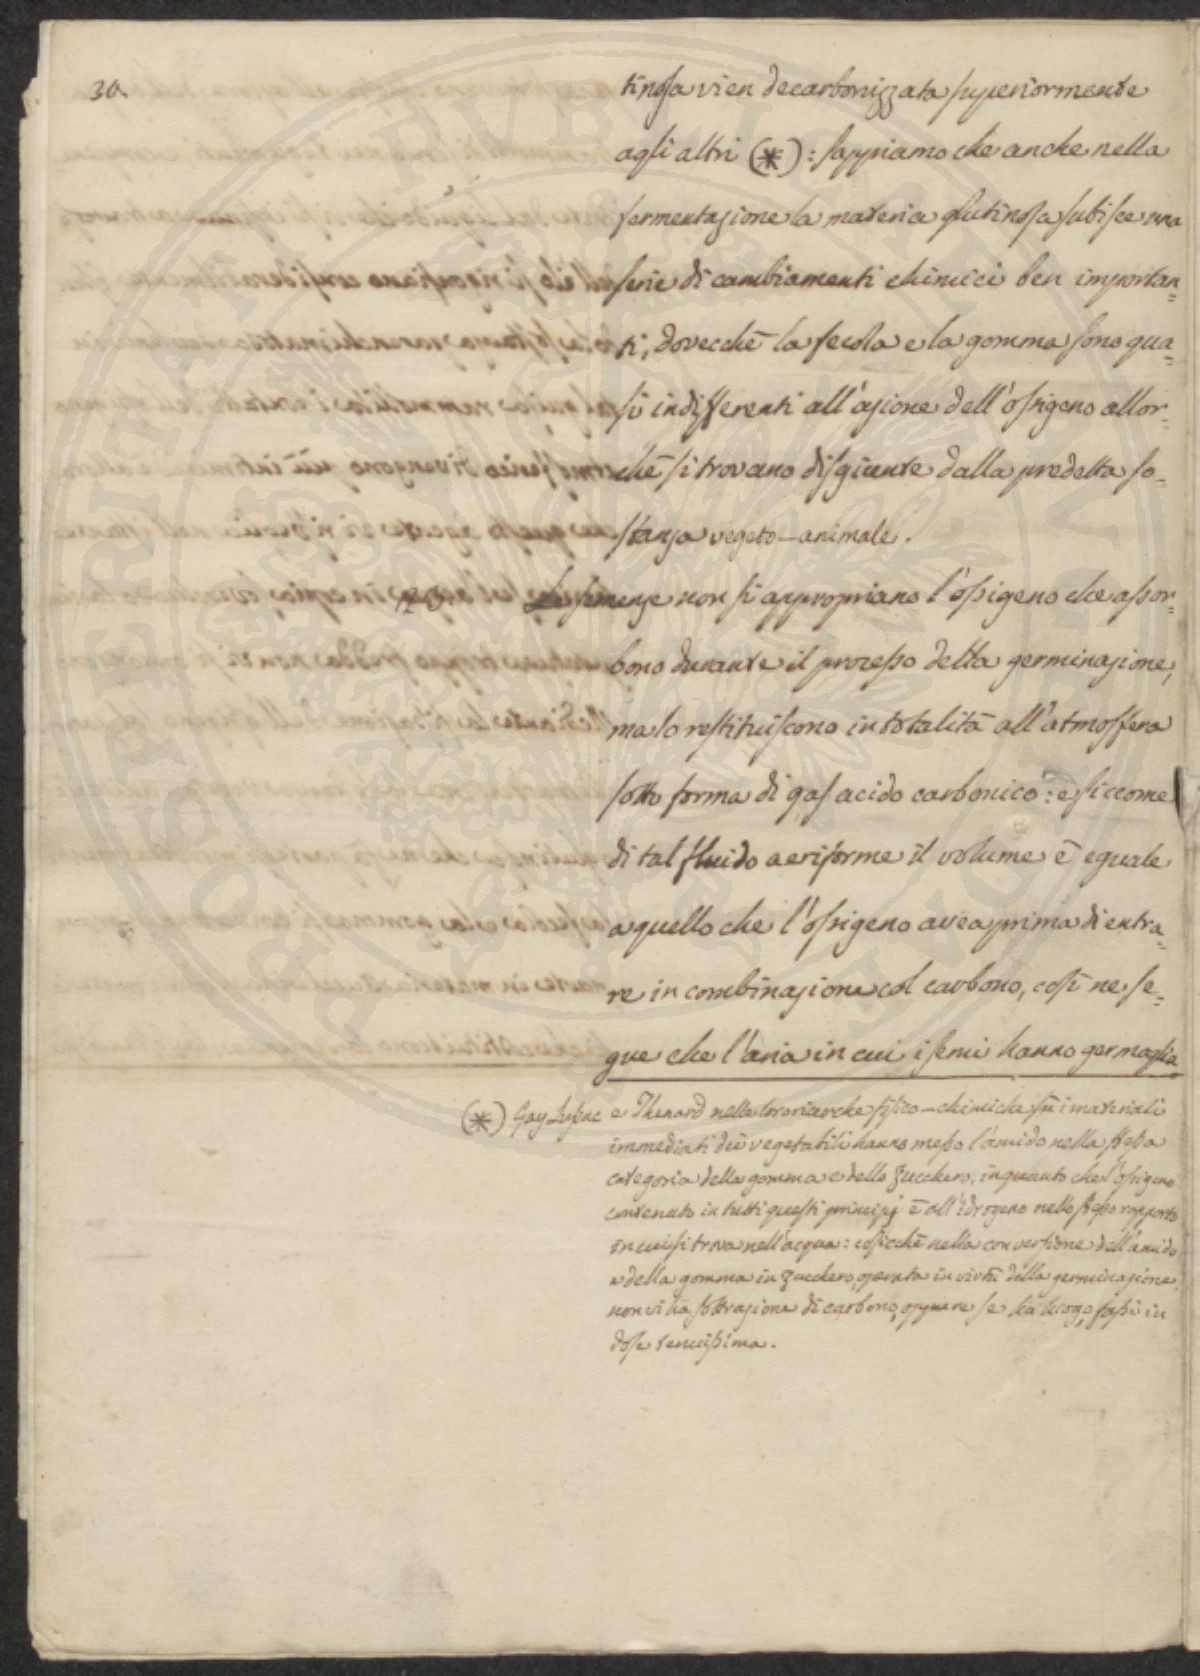 30.
tinosa vien decarbonizzata superiormente
agli altri (*): sappiamo che anche nella
fermentazione la materia glutinosa subisce una
serie di cambiamenti chimici ben importan=
ti, dovecchè la fecola e la gomma sono qua=
si indifferenti all'azione dell'ossigeno allor=
chè si trovano disgiunte dalla predetta so=
stanza vegeto-animale.
Le semenze non si appropriano l'ossigeno che assor=
bono durante il processo della germinazione,
ma lo restituiscono in totalità all'atmosfera
sotto forma di gas acido carbonico: e siccome
di tal fluido aeriforme il volume è eguale
a quello che l'ossigeno avea prima di entra=
re in combinazione col carbono, così ne se=
gue che l'aria in cui i semi hanno germoglia
(*) Gay Lussac e Thenard nelle loro ricerche fisico-chimiche sui materiali
immediati dei vegetabili hanno messo l'amido nella stessa
categoria della gomma e dello zucchero, inquanto che l'ossigeno
contenuto in tutti questi principj è all'idrogeno nello stesso rapporto
in cui si trova nell'acqua: cosicchè nella conversione dell'amido
e della gomma in zucchero, operata in virtù della germinazione,
non vi ha sottrazione di carbono, oppure se ha luogo, fassi in
dose tenuissima.